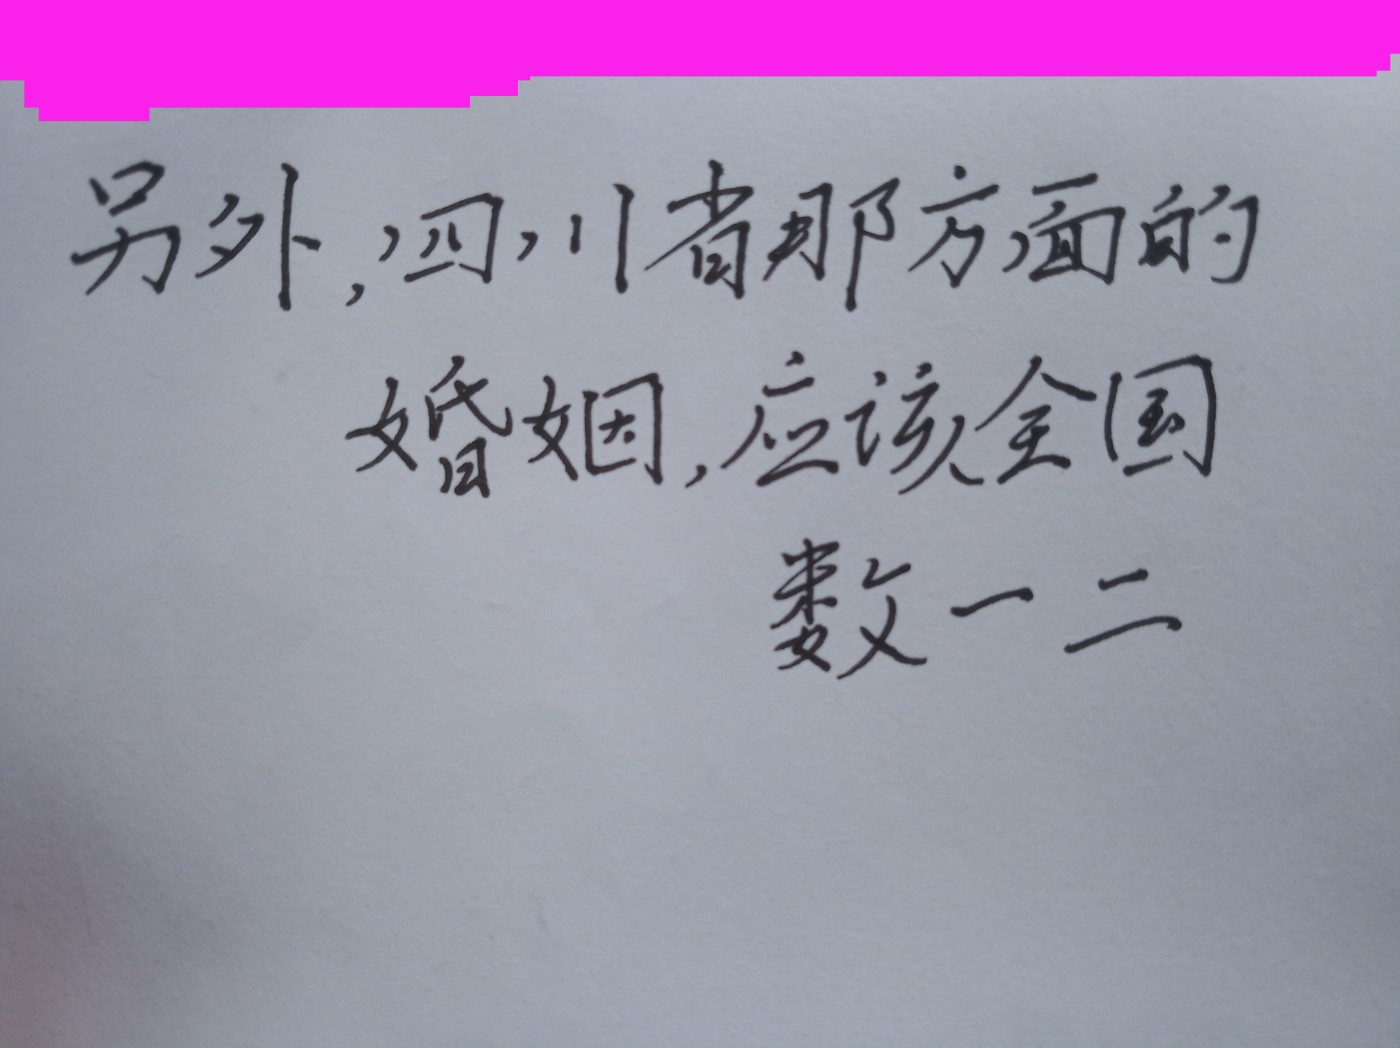 另外,四川省那方面的
婚姻,应该全国
数一二